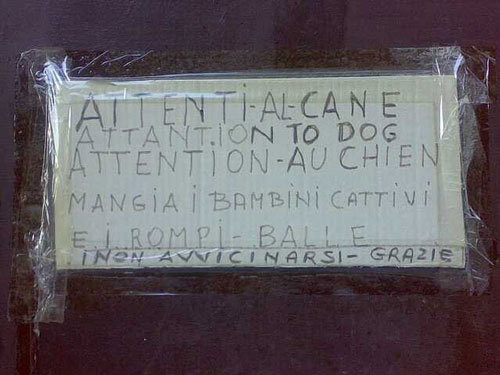 ATTENTI-AL-CANE
ATTANTION TO DOG
ATTENTION-AU CHIEN
MANGIA I BAMBINI CATTIVI
E I ROMPI-BALLE
INON AVVICINARSI-GRAZIE